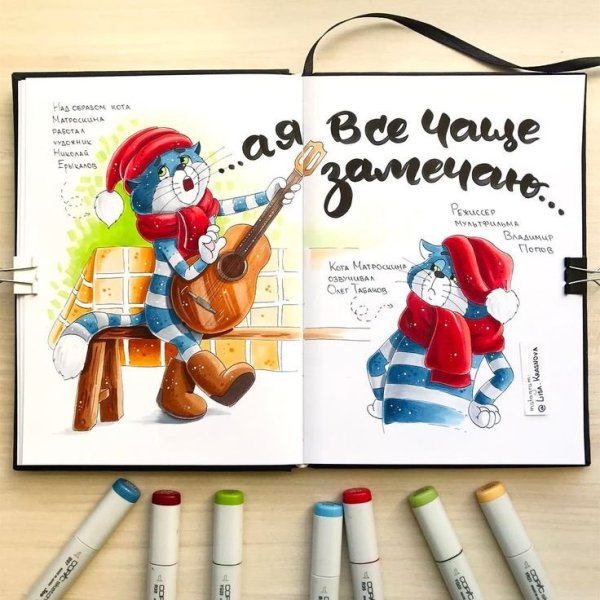 Над образом кота
Матроскина
работал
художник
Николай
Ерыкалов
...а я все чаще
замечаю...
Режиссер
мультфильма
Владимир
Попов
Кота Матроскина
озвучивал
Олег Табаков
instagram:
@Lisa.Krasnova
COPIC
COPIC
COPIC
COPIC
COPIC
COPIC